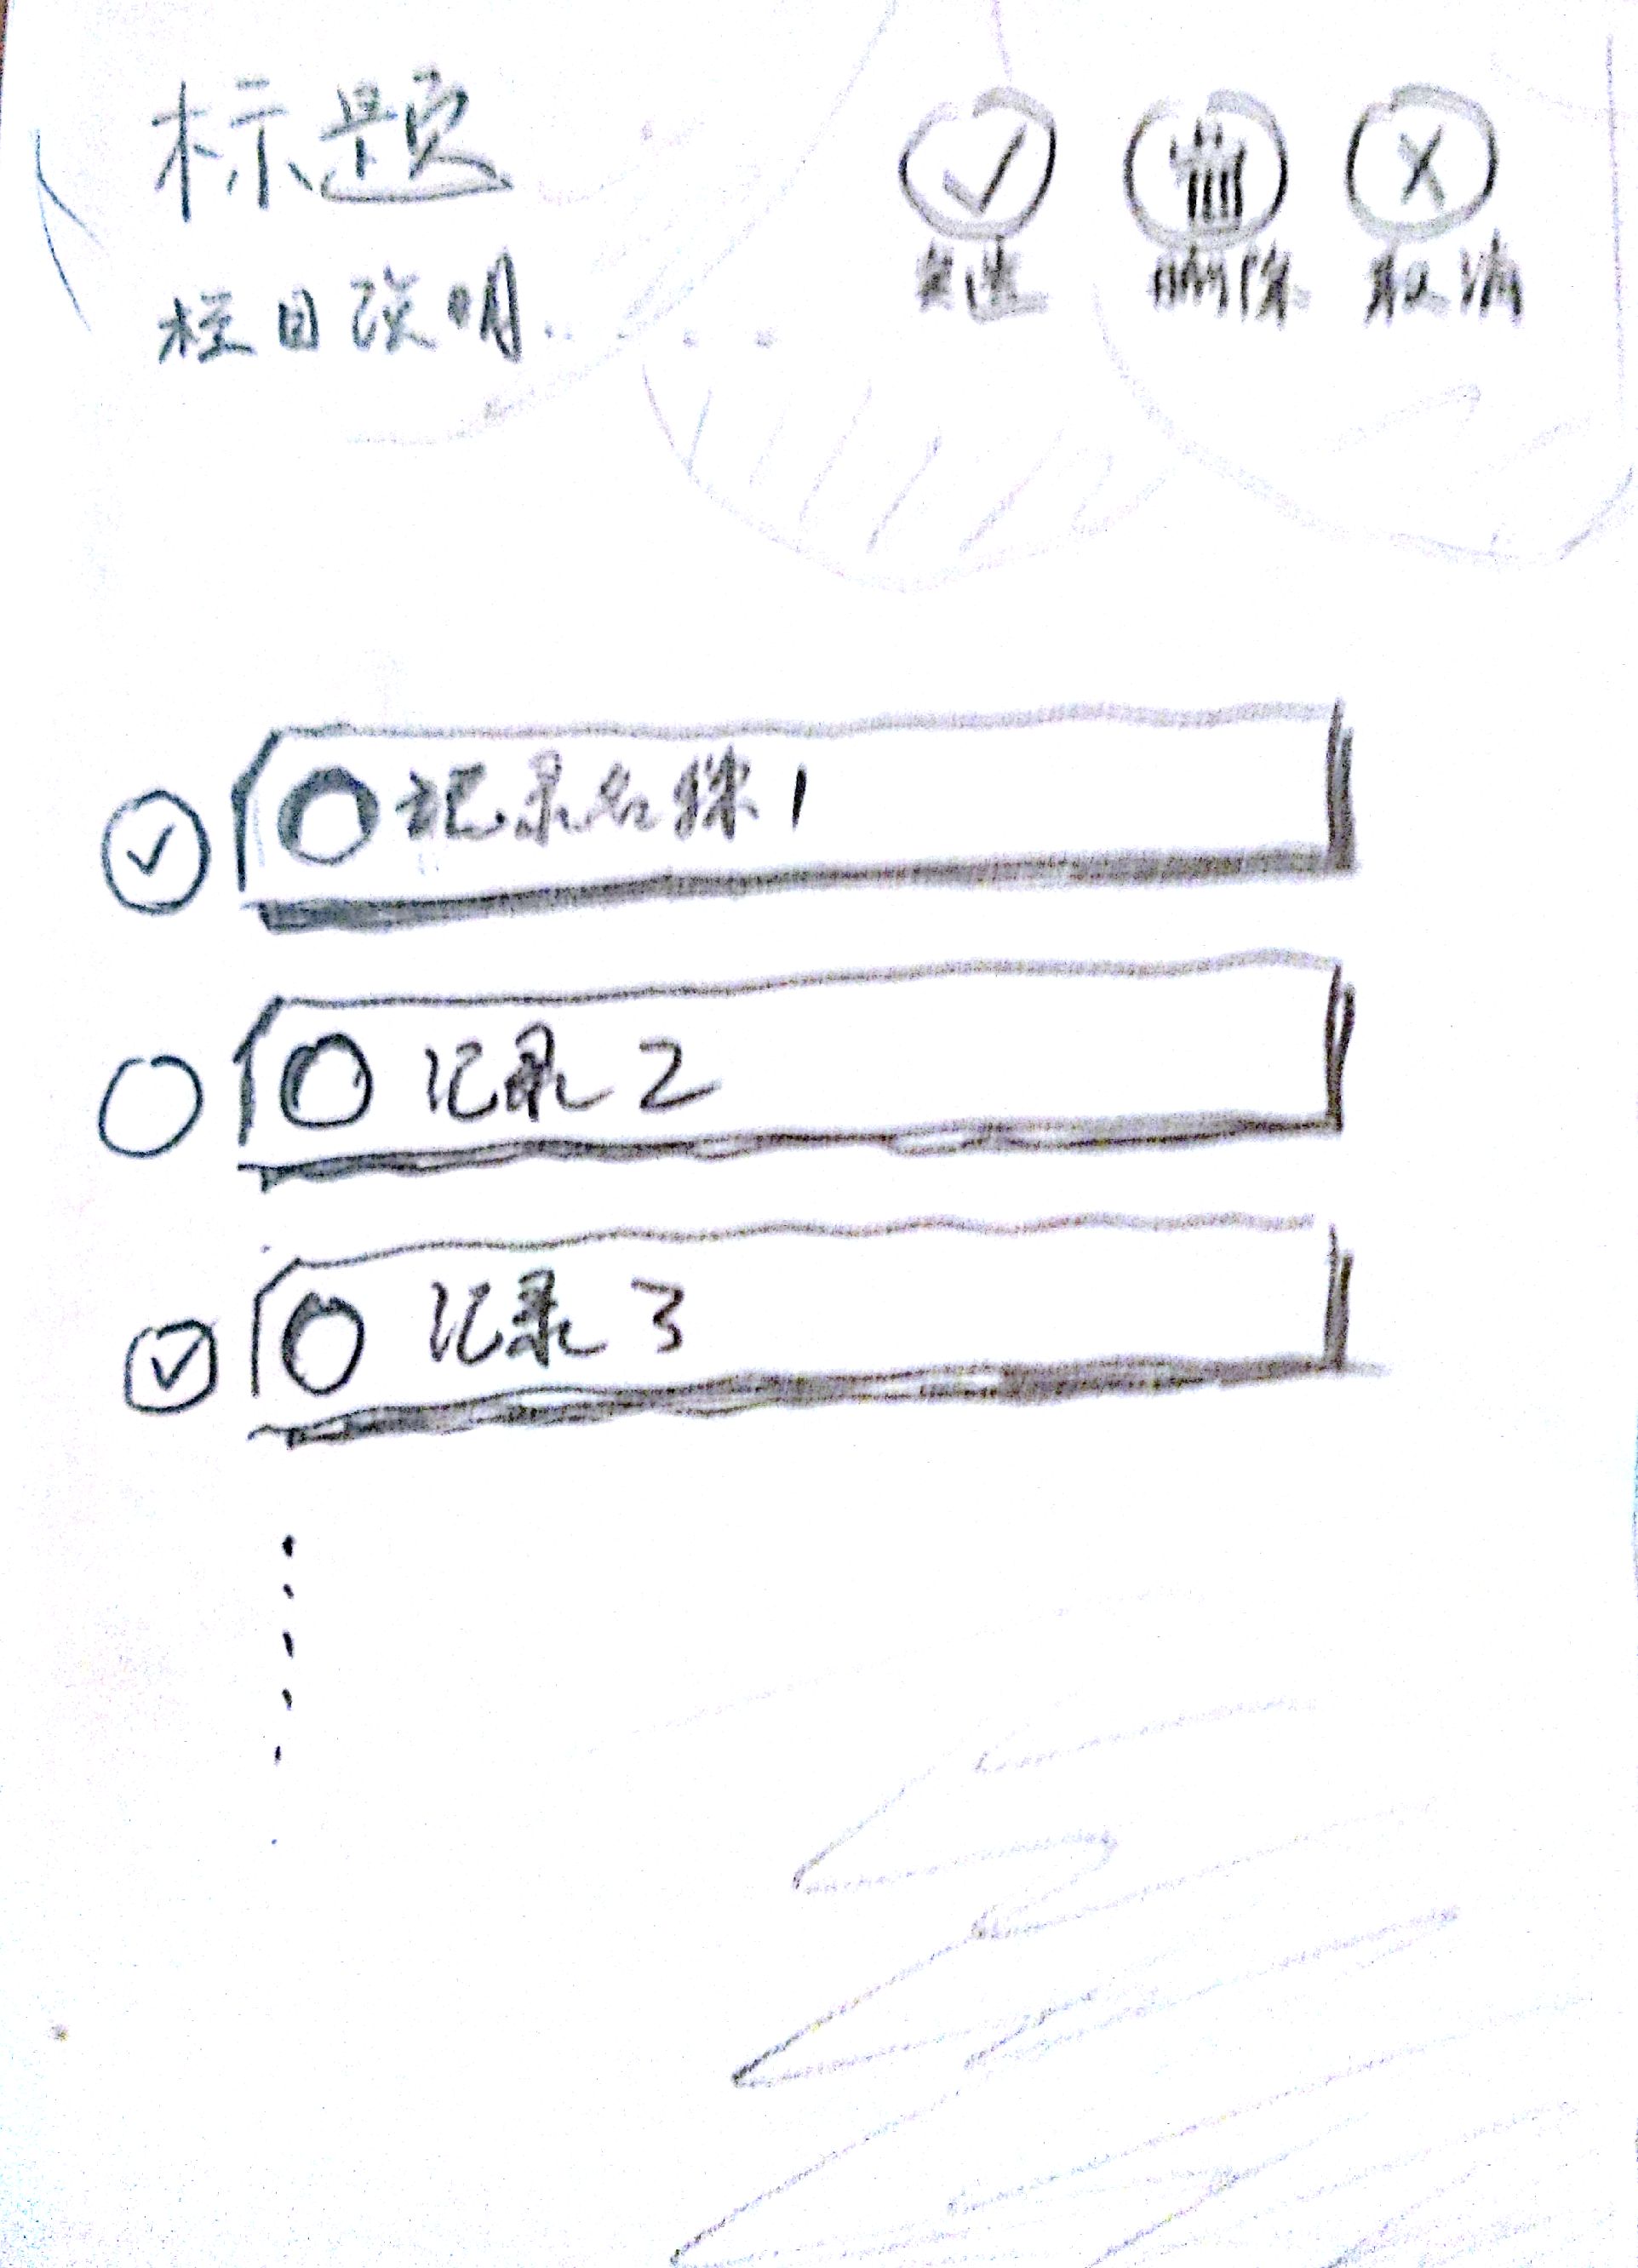 标题
栏目说明......
删除 取消
记录名称1
记录2
记录3